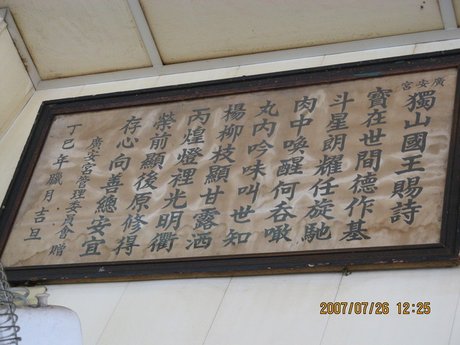 廣安宮
獨山國王賜詩
寶在世間德作基
斗星朗耀任旋馳
肉中喚醒何吞噉
丸內吟味叫世知
楊柳枝顯甘露洒
丙煌燈裡光明衢
柴前顯後原修得
存心向善總安宜
廣安宮管理委員會贈
丁巳年臘月吉旦
2007/07/26 12:25